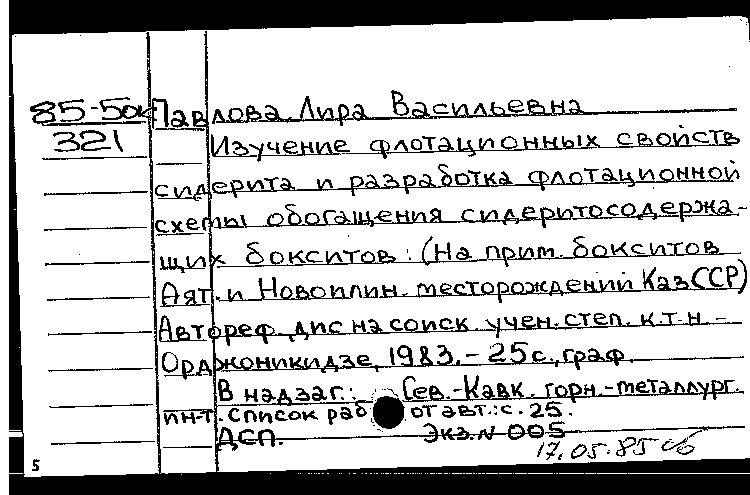 85-5дк Павлова Лира Васильевна
321 Изучение флотационных свойств
сидерита и разработка флотационной
схемы обогащения сидеритосодержа-
щих бокситов: (На прим. бокситов
Аят. и Новоплин. месторождений КазССР)
Автореф. дис на соиск. учен. степ. к.т.н. -
Орджоникидзе, 1983. - 25 с., граф.
В надзаг.: Сев.-Кавк. горн.-металлург.
ин-т. Список раб от авт.: с. 25.
ДСП. Экз. N 005
17.05.85
5